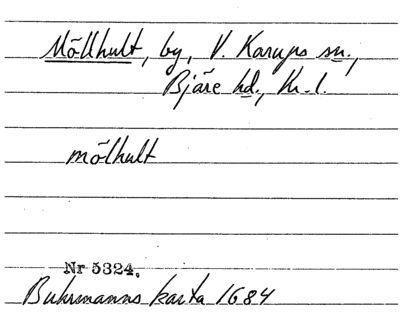 Möllhult, by, V. Karups sn.,
Bjäre hd., Kr. l.
mölhult
Nr 5324.
Buhrmanns karta 1684